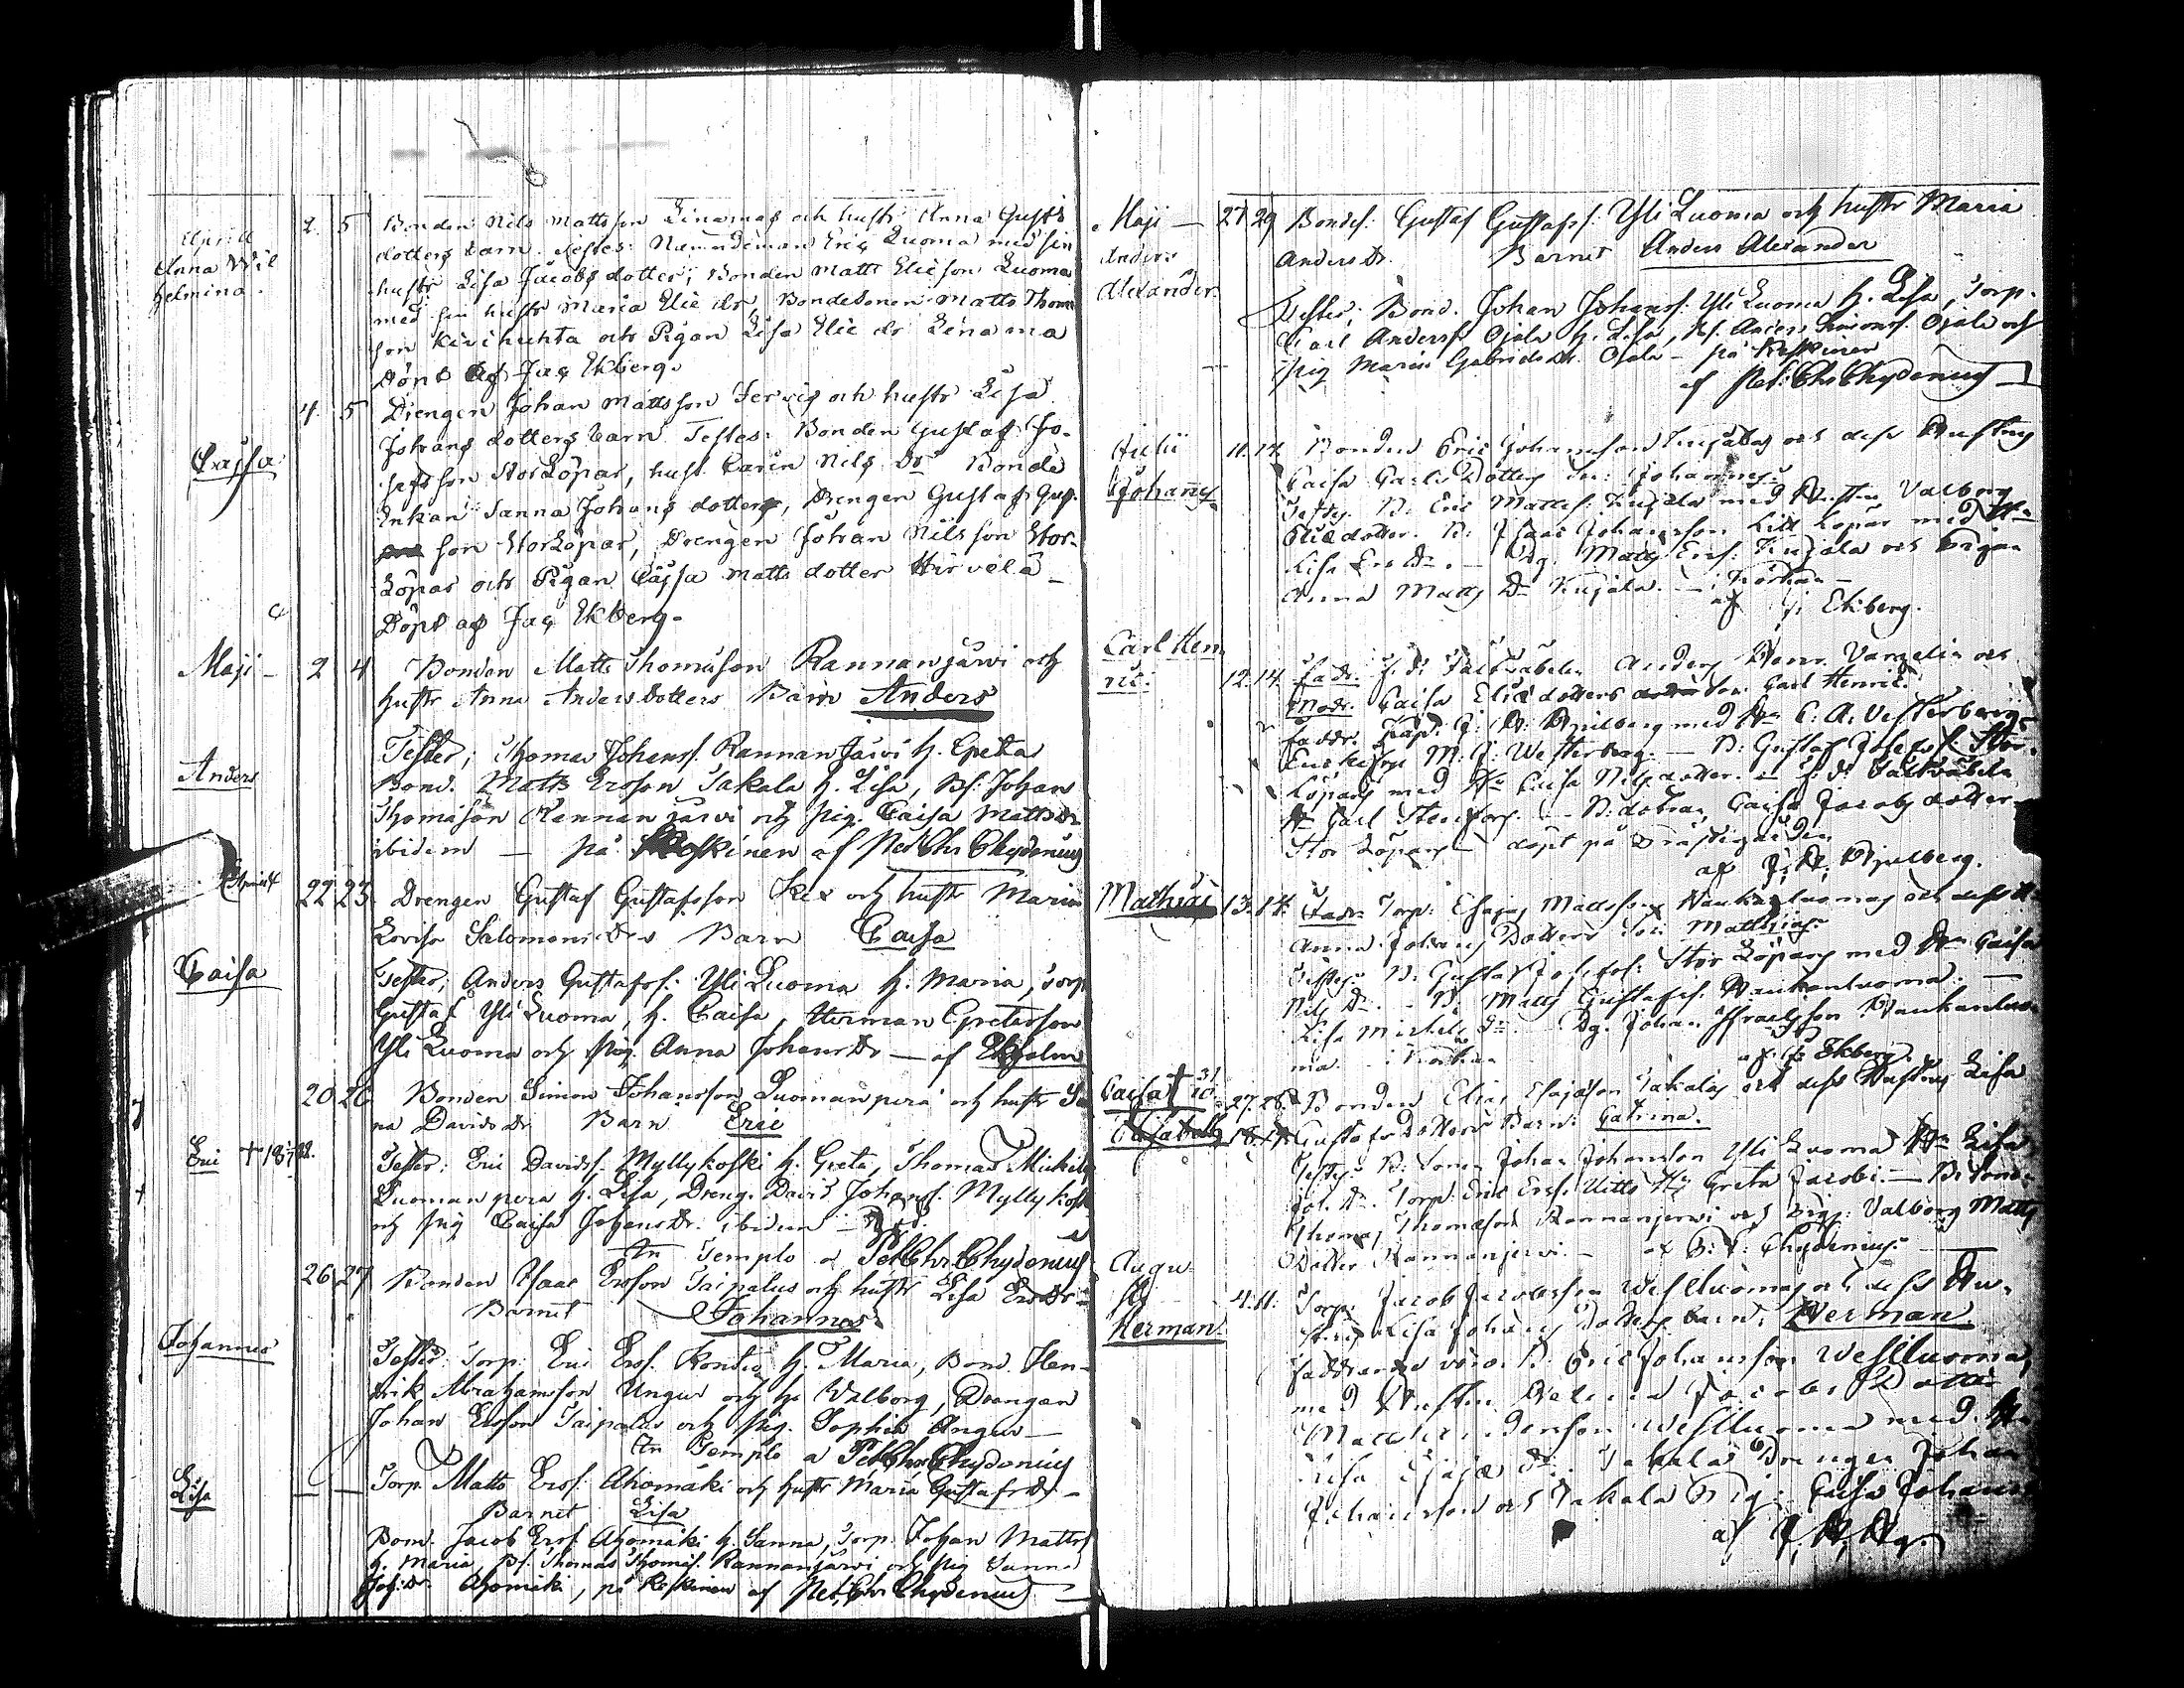 Aprill 2. 5 Bonden Nils Mattsson Linamas och hustr Anna Gust's
Anna Wil dotters barn. Testes: Nämndeman Eric Luoma med sin
helmina. hustr Lisa Jacobs dotter, Bonden Matts Elieson Luoma
med sin hustr Maria Elie dr, Bondesonen Matts Thom
son Kivihuhta och Pigan Lisa Elie dr Linama
Döpt af Jac Ekberg.
4. 5 Drengen Johan Mattsson Jervis och hustr Lisa
Johans dotters barn Testes: Bonden Gustaf Jo-
Cajsa sefsson StorLöpar, hust. Carin Nils Dr Bonde
Enkan Sanna Johans dotter, Drengen Gustaf Gus-
son StorLöpar, Drengen Johan Nilsson Stor-
Löpar och Pigan Cajsa Matts dotter Hirvelä
Döpt af Jac Ekberg.
Maji - 2 4 Bonden Matts Thomasson Rannanjärvi och
hustr Anna Andersdotters Barn Anders
Testes; Thomas Johanss. Rannanjärvi h. Greta
Anders Bond. Matts Ersson Takala h. Lisa, Bs. Johan
Thomasson Rannanjärvi och pig. Caisa Mattsdr
ibidem — på Keskinen af Pet Chr Chydenius
Aprill 22 23 Drengen Gustaf Gustafsson Kex och hustr Maria
Lovisa Salomonsdrs Barn Caisa
Caisa Testes, Anders Gustafss. Yli Luoma h. Maria, Torp
Gustaf Yli Luoma, h. Caisa, Herman Gretasson
Yli Luoma och pig. Anna Johansdr — af Ekholm
20 26 Bonden Simon Johansson Luomanperä och hustr Sa
na Davidsdr Barn Eric
Eric Testes: Eric Davidss. Myllykoski h. Greta, Thomas Mickels
Luomanpera h. Lisa, Dreng. David Johanss. Myllykoski
och pig Caisa Johansdr. ibidem
In Templo a Pet Chr Chydenius
26 27 Bonden Isaac Ersson Taipalus och hustr Lisa Ersdr
Barnet Johannes
Johannes Testes: Torp. Eric Erss. Kontio h. Maria, Bond. Hen-
drik Abrahamsson Ungur och h. Valborg, Drengen
Johan Ersson Taipalus och pig. Sophia Ungur —
In Templo a Pet Chr Chydenius
Lisa — — Torp. Matts Erss. Ahomäki och hustr Maria Gustafsdr -
Barnet Lisa
Bond. Jacob Erss. Ahomäki h. Sanna, Torp. Johan Mattss
h. Maria, Bs. Thomas Thomass. Rannanjärvi och pig Sanna
Joh:dr. Ahomäki, på Keskinen af Pet. Chr Chydenius
Maji — 27 29 Bondes: Gustaf Gustafss: Yli Luoma och hustr Maria
Anders Andersdr. Barnet Anders Alexander
Alexander. Testes, Bond. Johan Johanss. Yli Luoma h. Lisa, Torp.
Carl Anderss. Ojala h. Lisa, Bs. Anders Simonss. Ojala och
pig Maria Gabrielsdr. Ojala - på Keskinen
af Pet: Chr Chydenius
Julii 11. 14. Bonden Eric Johansson Kujalas och dess Hustrus
Johanes Caisa Carls Dotters son: Johannes.
Testes. B. Eric Mattss. Kujala med Hustru Valborg
Elie dotter. B: Isaac Johansson Lill Löpar med Hu
Lisa Ers Dr. — Dg. Matts Erss. Kujala och Pigan
Anna Matts Dr Kujala. — i Körkan —
af J: Ekberg.
Carl Hen
ric. 12. 14. Fadr. Anders Henr. Vargelin och
Modr. Caisa Elie dotters son: Carl Henric.
Faddr. med Hu C. A. Vesterberg.
M. J. Westerberg. — B: Gustaf Josefss. Stor
Löpars med Hu Caisa Nils dotter.
Carl Stenfors. — Caisa Jacobs dotter
Stor Löpars — döpt på Prästgården
af J. H. Hjulberg.
Mathias 13. 14. Fadr Torp: Esajas Mattssons Haukaluomas och dess H.
Anna Johans Dotters son Matthias.
Testes. B. Gustaf Josefss: Stor Löpars med Hu Caisa
Nils Dr. - B. Matts Gustafss. Haukaluoma. —
Lisa Michels Dr. Dg. Johan Israelsson Haukaluo-
ma. i Körkan af J: Ekberg.
Caisa † 31/10 27. 28. Bonden Elias Esajason Takalas och dess Hustrus Lisa
Gustafs Dotters Barn: Catrina.
Testes. B. Sonen Johan Johansson Yli Luoma Hu Lisa
Torp. Eric Erss. Uitto H. Greta Jacobs. — B: Sonen
Thomas Thomasson Rannanjervi och Pig: Valborg Matts
Dotter Rannanjervi. — af P. C. Chydenius.
Augu-
sti 4. 11. Torp: Jacob Jacobsson Westluomas och dess Hu-
Herman. strus Lisa Johans Dotters barn: Herman.
Faddrarne voro: B. Eric Johansson Westluoma,
med Hustru Jacobs Dotter
Westluoma med H.
Lisa Esajæ Dr: Takala Drengen Johan
Johansson och Takala Pig: Caisa Johans
af J. H. Hg.